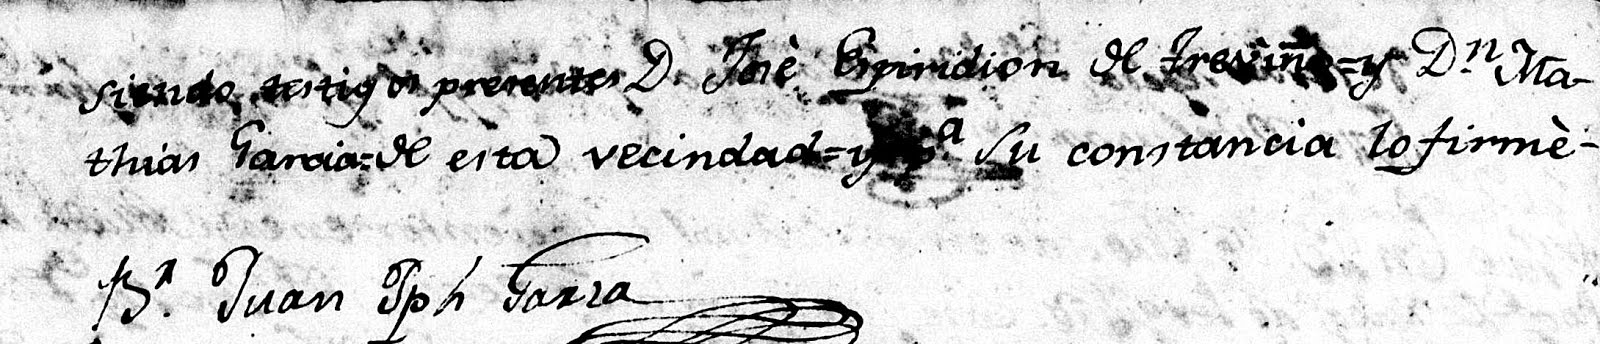 siendo testigos presentes D. Josè Espiridion de Treviño=y Dn Ma-
thias Garcia=de esta vecindad=y pa Su constancia lo firmè-
Br. Juan Jph Garza